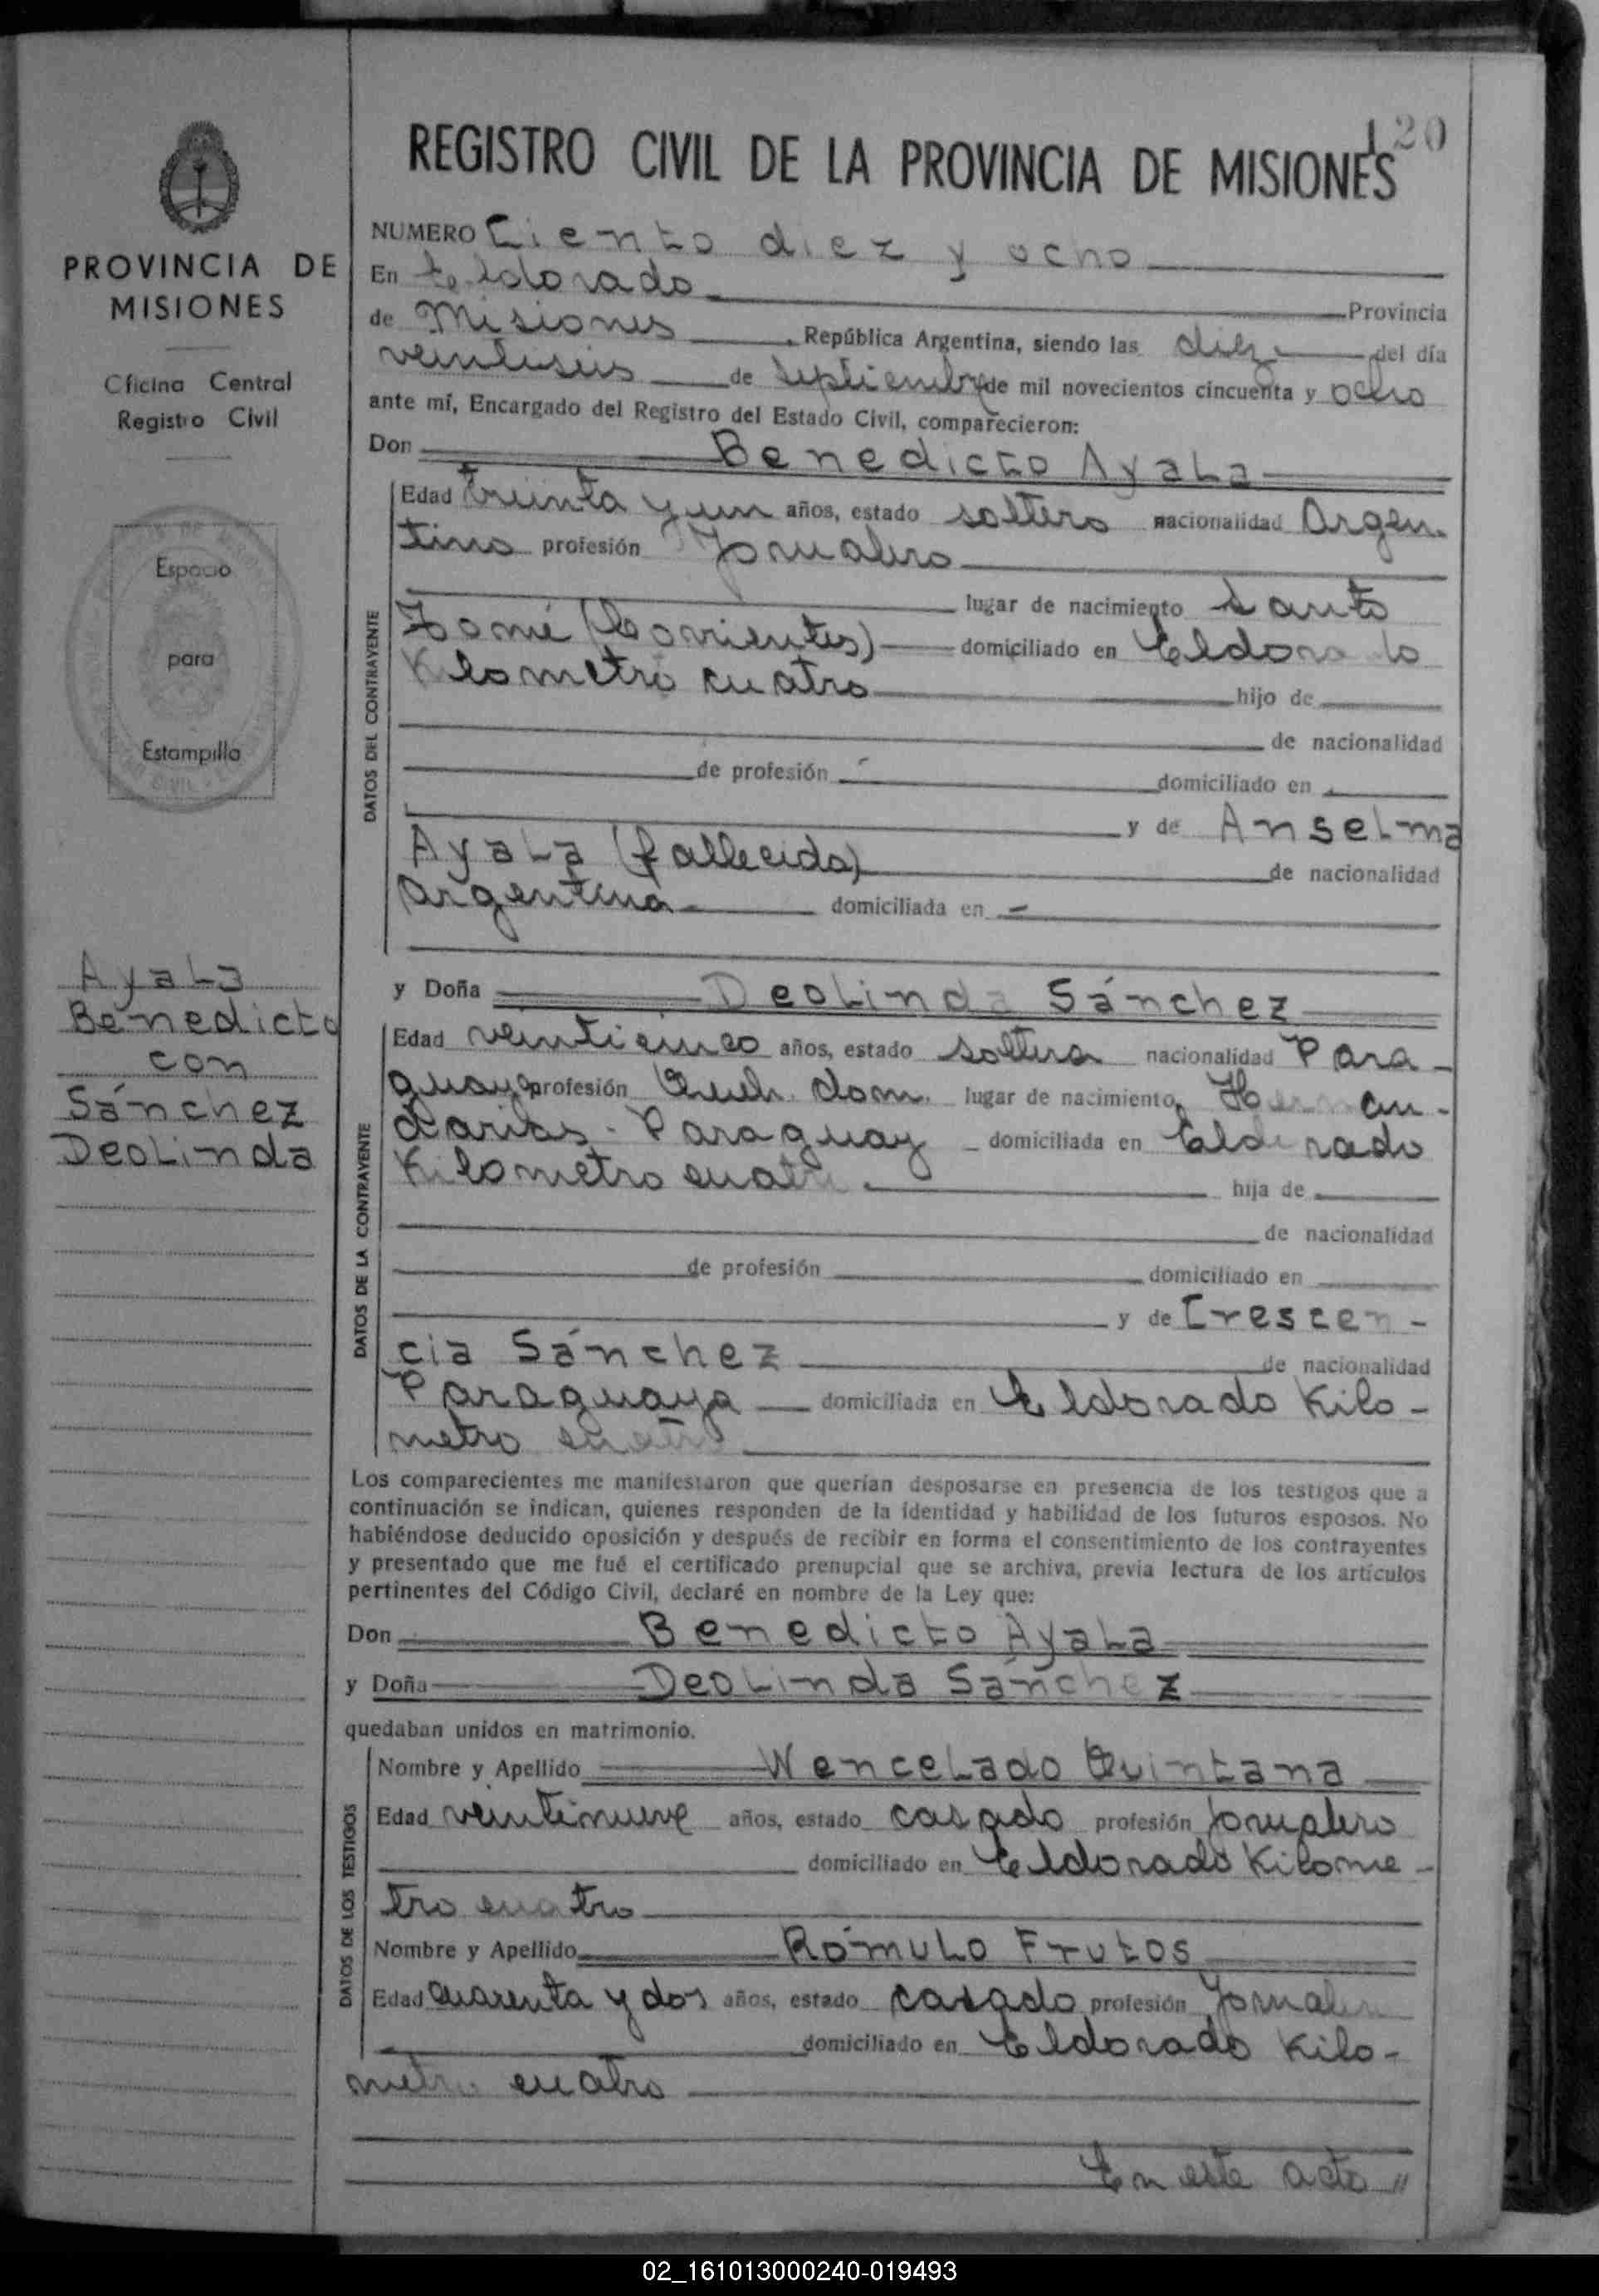 120
REGISTRO CIVIL DE LA PROVINCIA DE MISIONES
PROVINCIA DE
MISIONES
Oficina Central
Registro Civil
Espacio
para
Estampilla
Ayala
Benedicto
con
Sánchez
Deolinda
NUMERO Ciento diez y ocho
En Eldorado Provincia
de Misiones, República Argentina, siendo las diez del día
veintiseis de septiembre de mil novecientos cincuenta y ocho
ante mí, Encargado del Registro del Estado Civil, comparecieron:
Don Benedicto Ayala
DATOS DEL CONTRAYENTE
Edad treinta y un años, estado soltero nacionalidad Argen-
tino profesión Jornalero
lugar de nacimiento Santo
Tomé (Corrientes) domiciliado en Eldorado
Kilometro cuatro hijo de
de nacionalidad
de profesión domiciliado en
y de Anselma
Ayala (fallecida) de nacionalidad
Argentina domiciliada en -
y Doña Deolinda Sánchez
DATOS DE LA CONTRAYENTE
Edad veinticinco años, estado soltera nacionalidad Para-
guaya profesión Queh. dom. lugar de nacimiento Hernan-
darias - Paraguay - domiciliada en Eldorado
Kilometro cuatro hija de
de nacionalidad
de profesión domiciliado en
y de Crescen-
cia Sánchez de nacionalidad
Paraguaya domiciliada en Eldorado Kilo-
metro cuatro
Los comparecientes me manifestaron que querían desposarse en presencia de los testigos que a
continuación se indican, quienes responden de la identidad y habilidad de los futuros esposos. No
habiéndose deducido oposición y después de recibir en forma el consentimiento de los contrayentes
y presentado que me fué el certificado prenupcial que se archiva, previa lectura de los artículos
pertinentes del Código Civil, declaré en nombre de la Ley que:
Don Benedicto Ayala
y Doña Deolinda Sánchez
quedaban unidos en matrimonio.
DATOS DE LOS TESTIGOS
Nombre y Apellido Wencelado Quintana
Edad veintinueve años, estado casado profesión Jornalero
domiciliado en Eldorado Kilome-
tro cuatro
Nombre y Apellido Rómulo Frutos
Edad cuarenta y dos años, estado casado profesión Jornalero
domiciliado en Eldorado Kilo-
metro cuatro
En este acto //
02_161013000240-019493